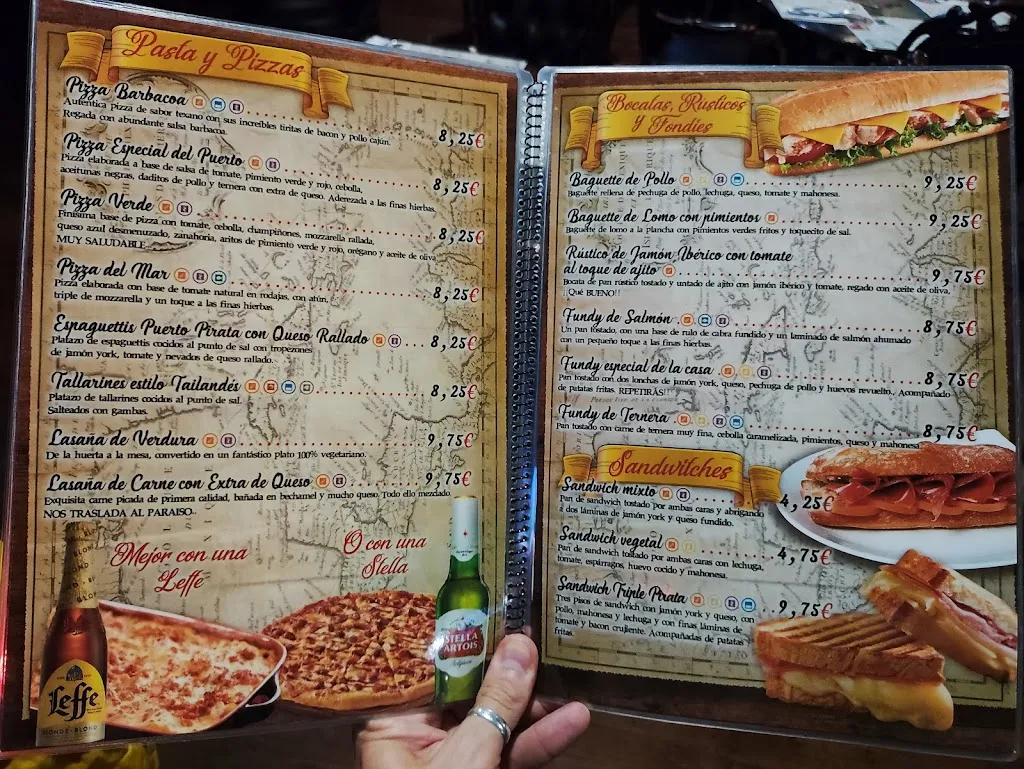 Pasta y Pizzas
Pizza Barbacoa 8,25€
Autentica Pizza de sabor texano con sus increíbles tiritas de bacon y pollo cajún.
Regada con abundante salsa barbacoa.
Pizza Especial del Puerto 8,25€
Pizza elaborada a base de salsa de tomate, pimiento verde y rojo, cebolla,
aceitunas negras, daditos de pollo y ternera con extra de queso. Aderezada a las finas hierbas.
Pizza Verde 8,25€
Finísima base de pizza con tomate, cebolla, champiñones, mozzarella rallada,
queso azul desmenuzado, zanahoria, aritos de pimiento verde y rojo, orégano y aceite de oliva.
MUY SALUDABLE
Pizza del Mar 8,25€
Pizza elaborada con base de tomate natural en rodajas, con atún,
triple de mozzarella y un toque a las finas hierbas.
Espaguettis Puerto Pirata con Queso Rallado 8,25€
Platazo de espaguettis cocidos al punto de sal con tropezones
de jamón york, tomate y nevados de queso rallado.
Tallarines estilo Tailandés 8,25€
Platazo de tallarines cocidos al punto de sal.
Salteados con gambas.
Lasaña de Verdura 9,75€
De la huerta a la mesa, convertido en un fantástico plato 100% vegetariano.
Lasaña de Carne con Extra de Queso 9,75€
Exquisita carne picada de primera calidad, bañada en bechamel y mucho queso. Todo ello mezclado.
NOS TRASLADA AL PARAISO
Mejor con una
Leffe
O con una
Stella
Leffe
BLONDE-BLOND
STELLA
ARTOIS
Bocatas, Rusticos
y Fondies
Baguette de Pollo 9,25€
Baguette rellena de pechuga de pollo, lechuga, queso, tomate y mahonesa.
Baguette de Lomo con pimientos 9,25€
Baguette de lomo a la plancha con pimientos verdes fritos y toquecito de sal.
Rústico de Jamón Ibérico con tomate
al toque de ajito 9,75€
Bocata de pan rústico tostado y untado de ajito con jamón ibérico y tomate, regado con aceite de oliva.
¡¡Qué BUENO!!
Fundy de Salmón 8,75€
Un pan tostado, con una base de rulo de cabra fundido y un laminado de salmón ahumado
con un pequeño toque a las finas hierbas.
Fundy especial de la casa 8,75€
Pan tostado con dos lonchas de jamón york, queso, pechuga de pollo y huevos revuelto,. Acompañado
de patatas fritas. REPETIRÁS!!
Fundy de Ternera 8,75€
Pan tostado con carne de ternera muy fina, cebolla caramelizada, pimientos, queso y mahonesa.
Sandwitches
Sandwich mixto 4,25€
Pan de sandwich tostado por ambas caras y abrigando
a dos láminas de jamón york y queso fundido.
Sandwich vegetal 4,75€
Pan de sandwich tostado por ambas caras con lechuga,
tomate, espárragos, huevo cocido y mahonesa.
Sandwich Triple Pirata 9,75€
Tres pisos de sandwich con jamón york y queso, con
Pollo, mahonesa y lechuga y con finas láminas de
tomate y bacon crujiente. Acompañadas de patatas
fritas.